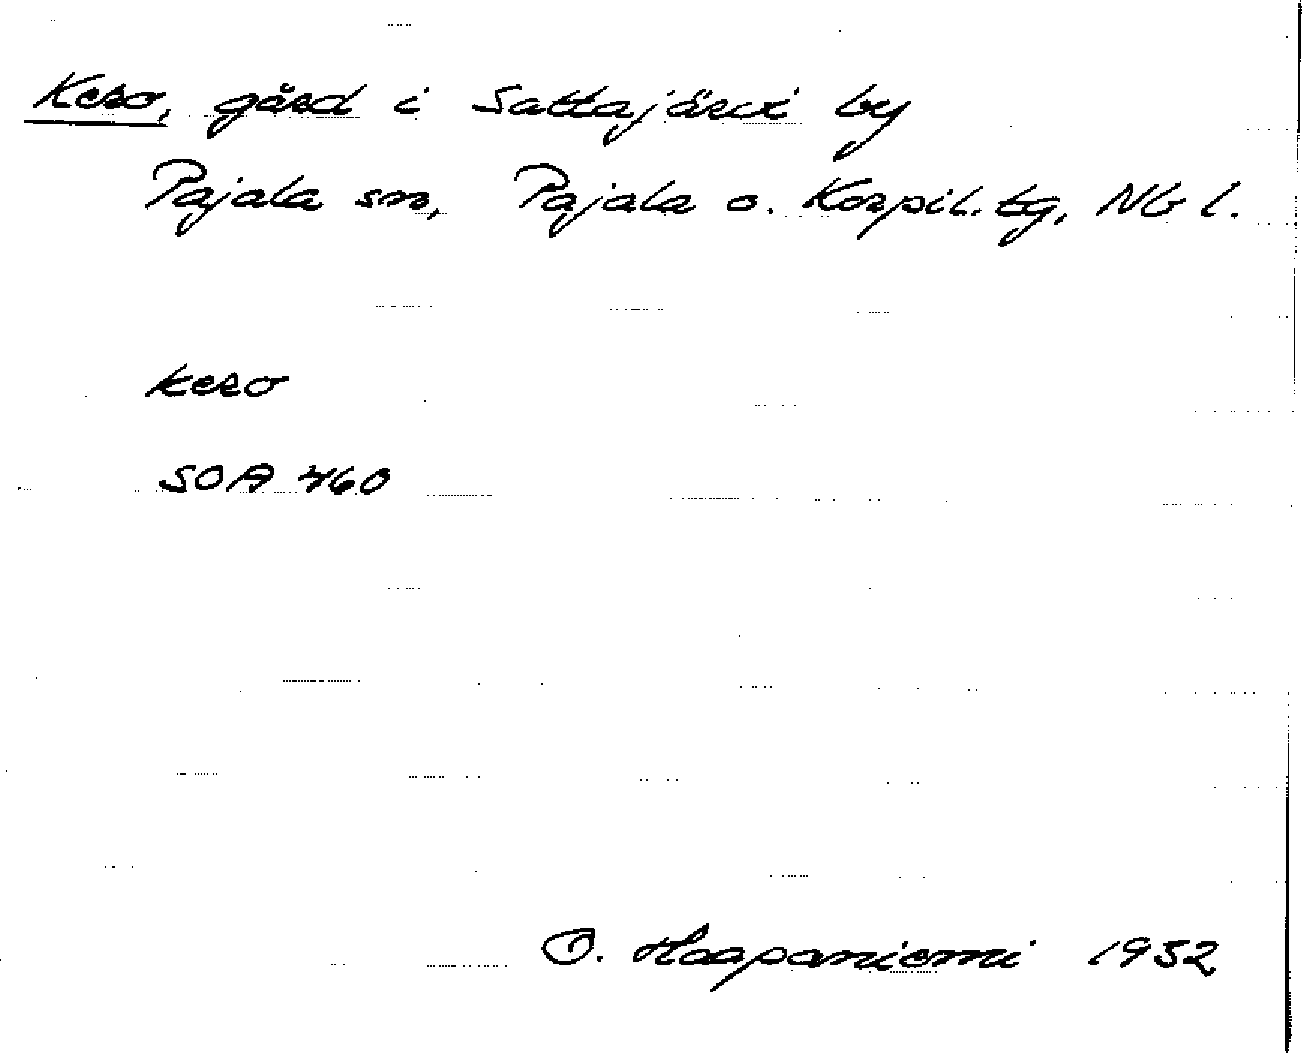 Kero, gård i Sattajärvi by
Pajala sn, Pajala o. Korpil. tg, Nb l.
kero
SOA 460
O. Haapaniemi 1952